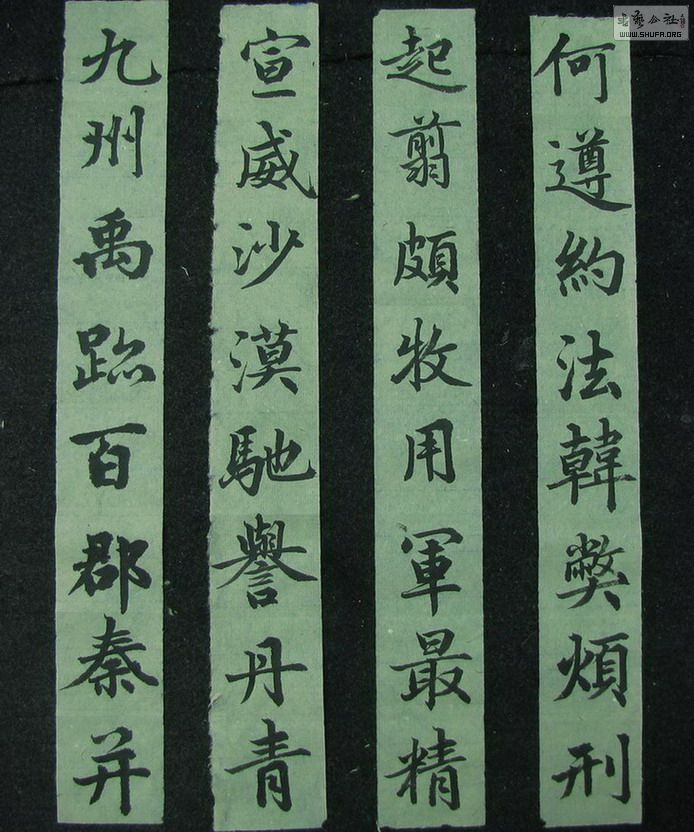 何遵約法韓弊煩刑
起翦頗牧用軍最精
宣威沙漠馳譽丹青
九州禹跡百郡秦并
WWW.SHUFA.ORG